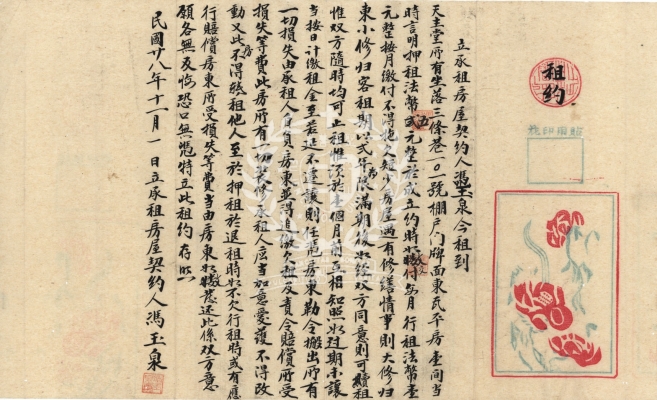 租约
貼用印花
立承租房屋契約人馮玉泉今租到
天主堂所有坐落三條巷一〇一號棚戶门牌面東瓦平房壹间当
時言明押租法幣五元整於成立约時如數付交每月行租法幣壹
元整按月繳付不得拖欠短少房屋遇有修缮情事則大修归
東小修归客租期以弍年为限滿期後如经双方同意則可續租
惟双方隨時均可止租惟須於半個月前互相知照如过期未讓
当按日计繳租金至若延不遷讓則任憑房東勒令搬出所有
一切損失由承租人自負房東並得追繳欠租及責令賠償所受
損失等費此房所有一切装修承租人应当加意愛護不得改
動又此房不得转租他人至於押租於退租時如不欠行租時或有應
行賠償房東所受損失等費当由房東如數发还此係双方意
願各無反悔恐口無憑特立此租约存照
民國廿八年十一月一日立承租房屋契约人馮玉泉